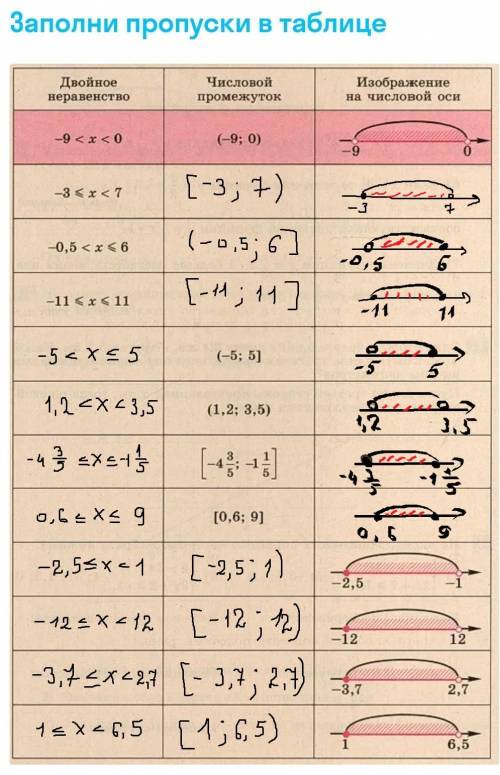 Заполни пропуски в таблице
Двойное неравенство Числовой промежуток Изображение на числовой оси
–9 < x < 0 (–9; 0) –9 0
–3 ⩽ x < 7 [-3; 7) -3 7
–0,5 < x ⩽ 6 (-0,5; 6] -0,5 6
–11 ⩽ x ⩽ 11 [-11; 11] -11 11
-5 < x ≤ 5 (–5; 5] -5 5
1,2 < x < 3,5 (1,2; 3,5) 1,2 3,5
-4 3/5 ≤ x ≤ -1 1/5 [–4 3/5; –1 1/5] -4 3/5 -1 1/5
0,6 ≤ x ≤ 9 [0,6; 9] 0,6 9
-2,5 ≤ x < 1 [-2,5; 1) –2,5 –1
-12 ≤ x < 12 [-12; 12) –12 12
-3,7 ≤ x < 2,7 [-3,7; 2,7) –3,7 2,7
1 ≤ x < 6,5 [1; 6,5) 1 6,5